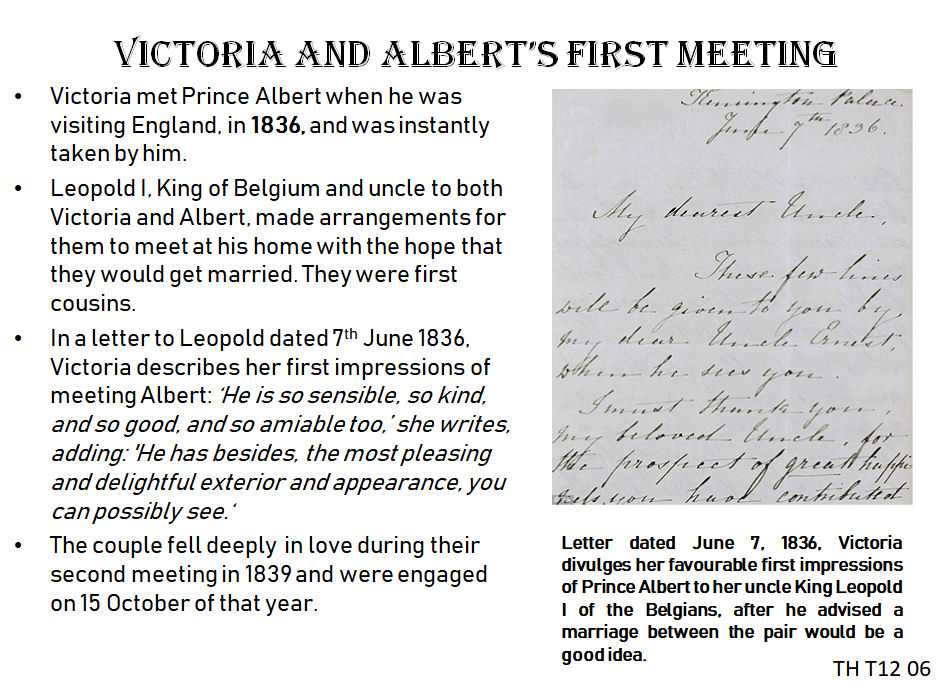 VICTORIA AND ALBERT'S FIRST MEETING
• Victoria met Prince Albert when he was
visiting England, in 1836, and was instantly
taken by him.
• Leopold I, King of Belgium and uncle to both
Victoria and Albert, made arrangements for
them to meet at his home with the hope that
they would get married. They were first
cousins.
• In a letter to Leopold dated 7th June 1836,
Victoria describes her first impressions of
meeting Albert: ‘He is so sensible, so kind,
and so good, and so amiable too,’ she writes,
adding: 'He has besides, the most pleasing
and delightful exterior and appearance, you
can possibly see.‘
• The couple fell deeply in love during their
second meeting in 1839 and were engaged
on 15 October of that year.
Kensington Palace
June 7th 1836.
My dearest Uncle,
These few lines
will be given to you by
my dear Uncle Ernest,
when he sees you.
I must thank you,
my beloved Uncle, for
the prospect of great happi
ness you have contributed
Letter dated June 7, 1836, Victoria
divulges her favourable first impressions
of Prince Albert to her uncle King Leopold
I of the Belgians, after he advised a
marriage between the pair would be a
good idea.
TH T12 06